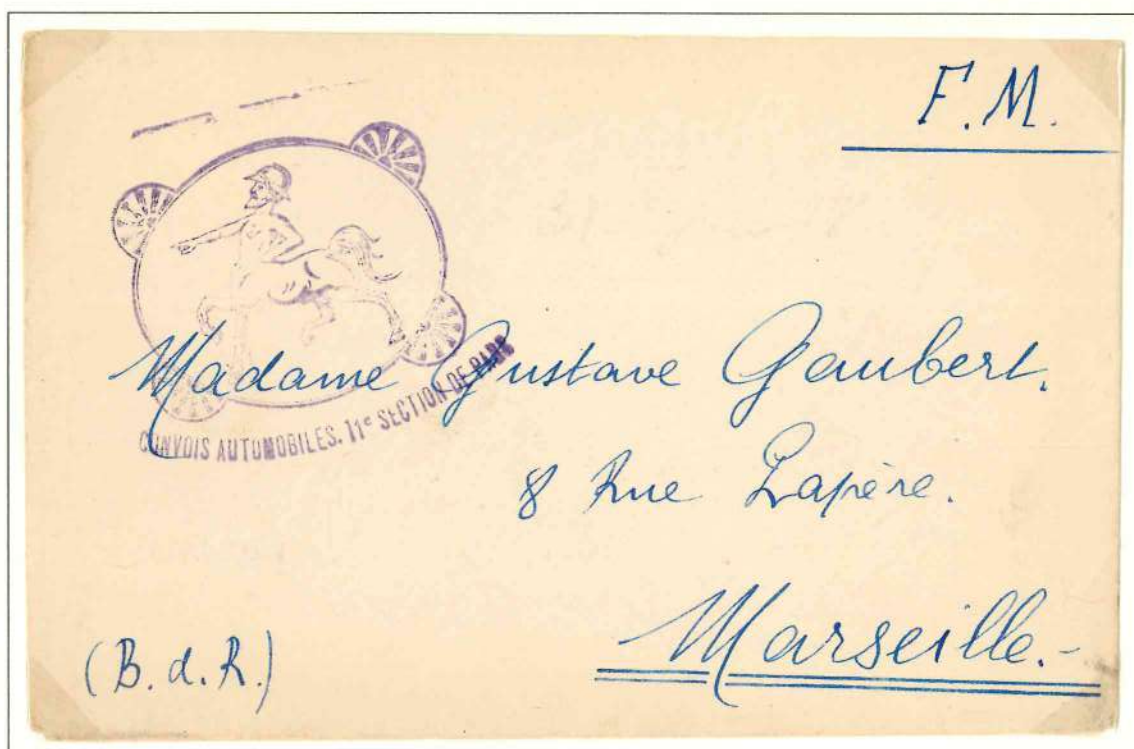 F.M.
CONVOIS AUTOMOBILES. 11e SECTION DE PARC
Madame Gustave Gaubert.
8 Rue Lapère.
Marseille.-
(B. d. R.)